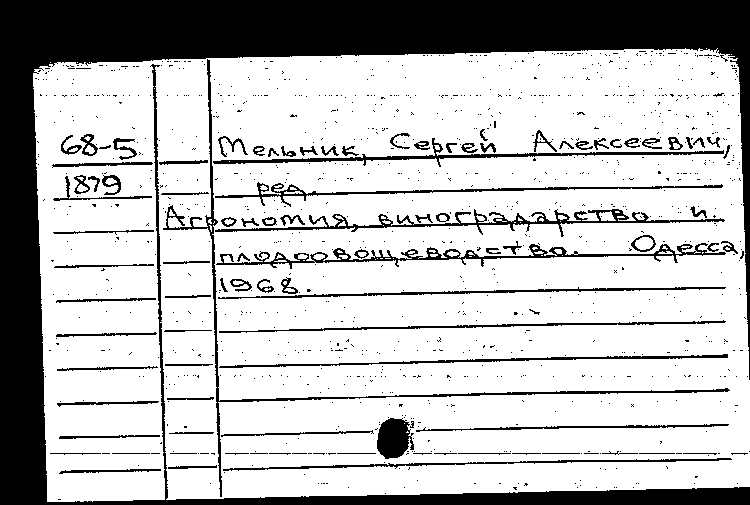 68-5 Мельник, Сергей Алексеевич,
1879 ред.
Агрономия, виноградарство и
плодоовощеводство. Одесса,
1968.